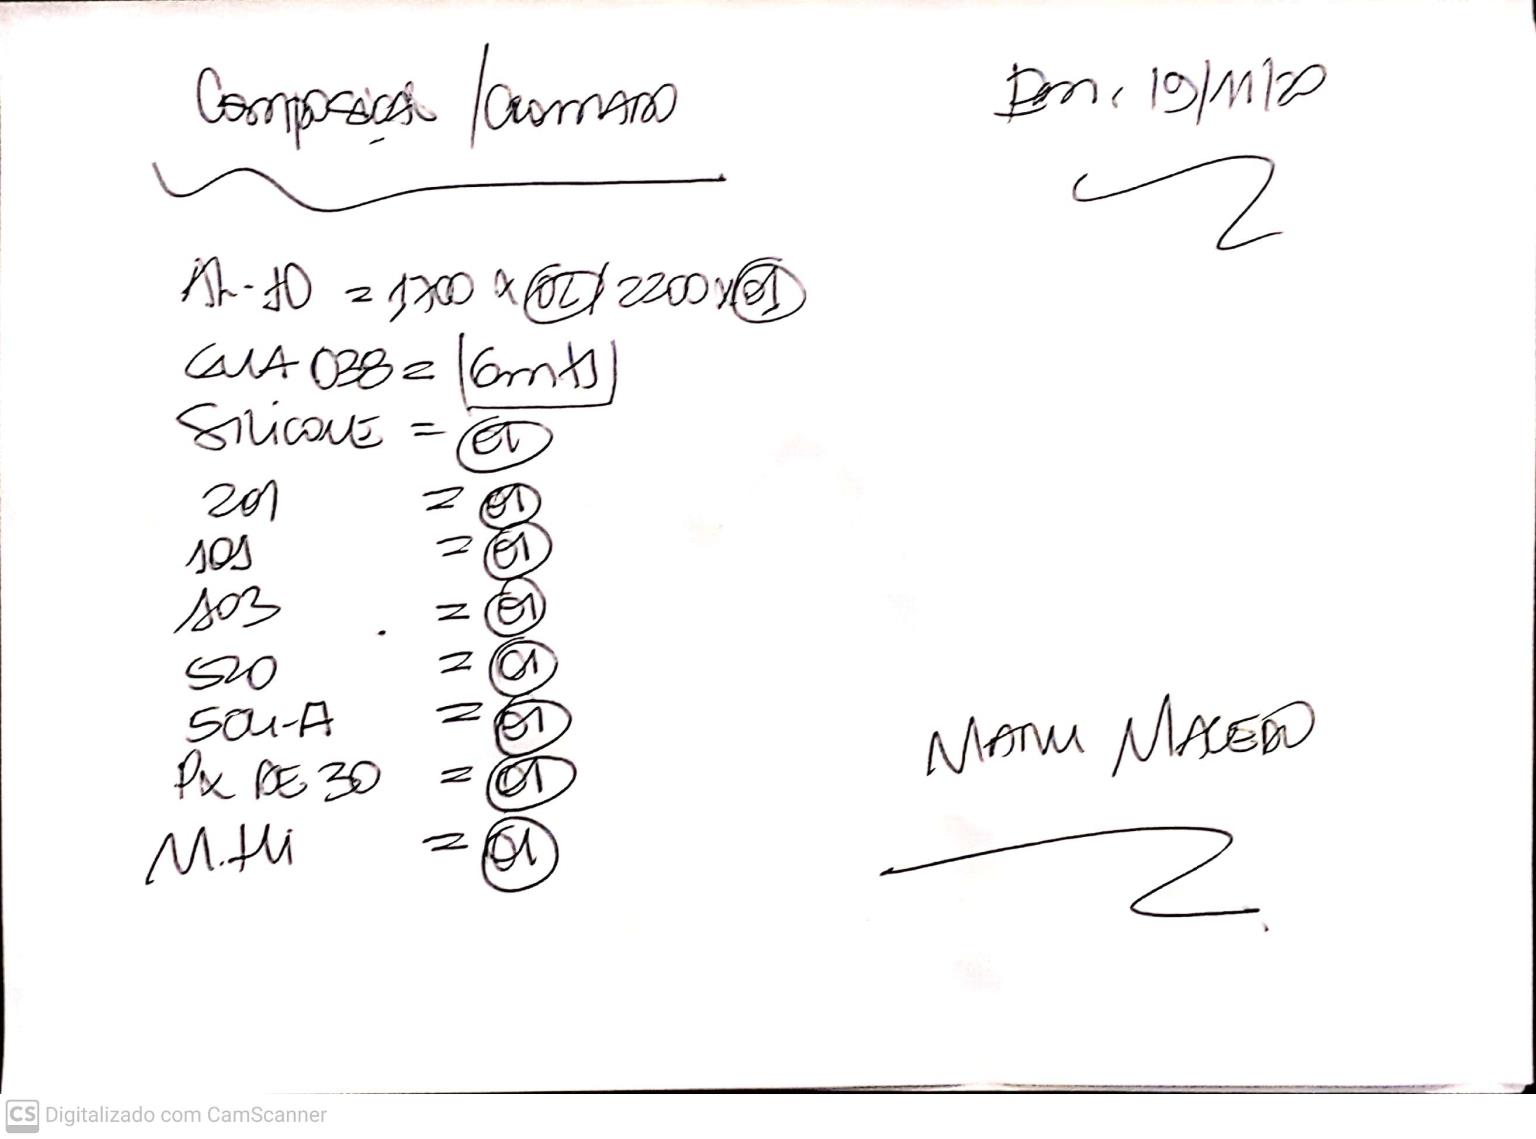 Composição / Cromado
Em. 19/11/20
AL-10 = 1700 x 02 / 2200 x 01
CUIA 038 = 6mts
SILICONE = 01
201 = 01
101 = 01
103 = 01
520 = 01
504-A = 01
Px DE 30 = 01
M.
= 01
MANU MACEDO
CS Digitalizado com CamScanner